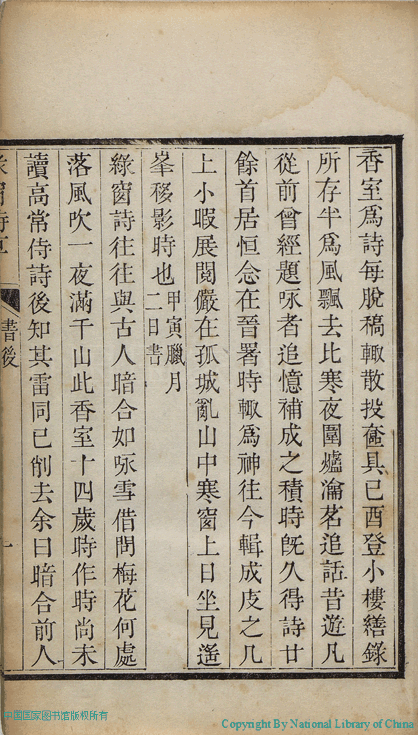 香室爲詩每脫稿輙散投奩具已酉登小樓繕錄
所存半爲風飄去比寒夜圍爐瀹茗追話昔遊凡
從前曾經題咏者追憶補成之積時旣久得詩廿
餘首居恒念在晉署時輙爲神往今輯成庋之几
上小暇展閱儼在孤城亂山中寒窗上日坐見遙
峯移影時也甲寅臘月
二日書
綠窗詩往往與古人暗合如咏雪借問梅花何處
落風吹一夜滿千山此香室十四歲時作時尚未
讀高常侍詩後知其雷同已削去余曰暗合前人
書後
一
中国国家图书馆版权所有
Copyright By National Library of China